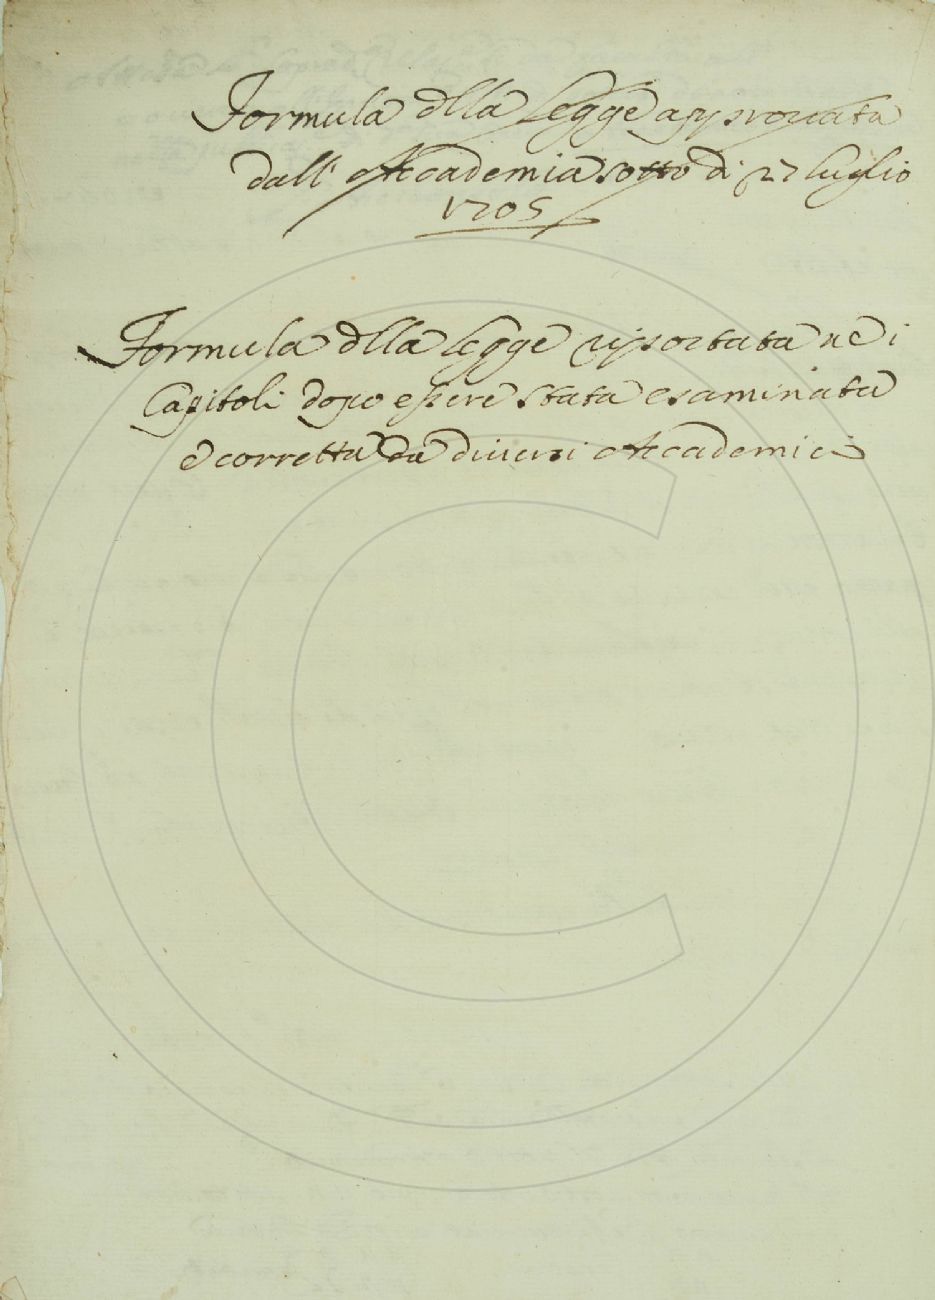 Formula dlla Legge approvata
dall' Accademia sotto di 27 luglio
1705
Formula dlla legge riportata ne i
Capitoli dopo essere stata esaminata
e corretta da diversi Accademici